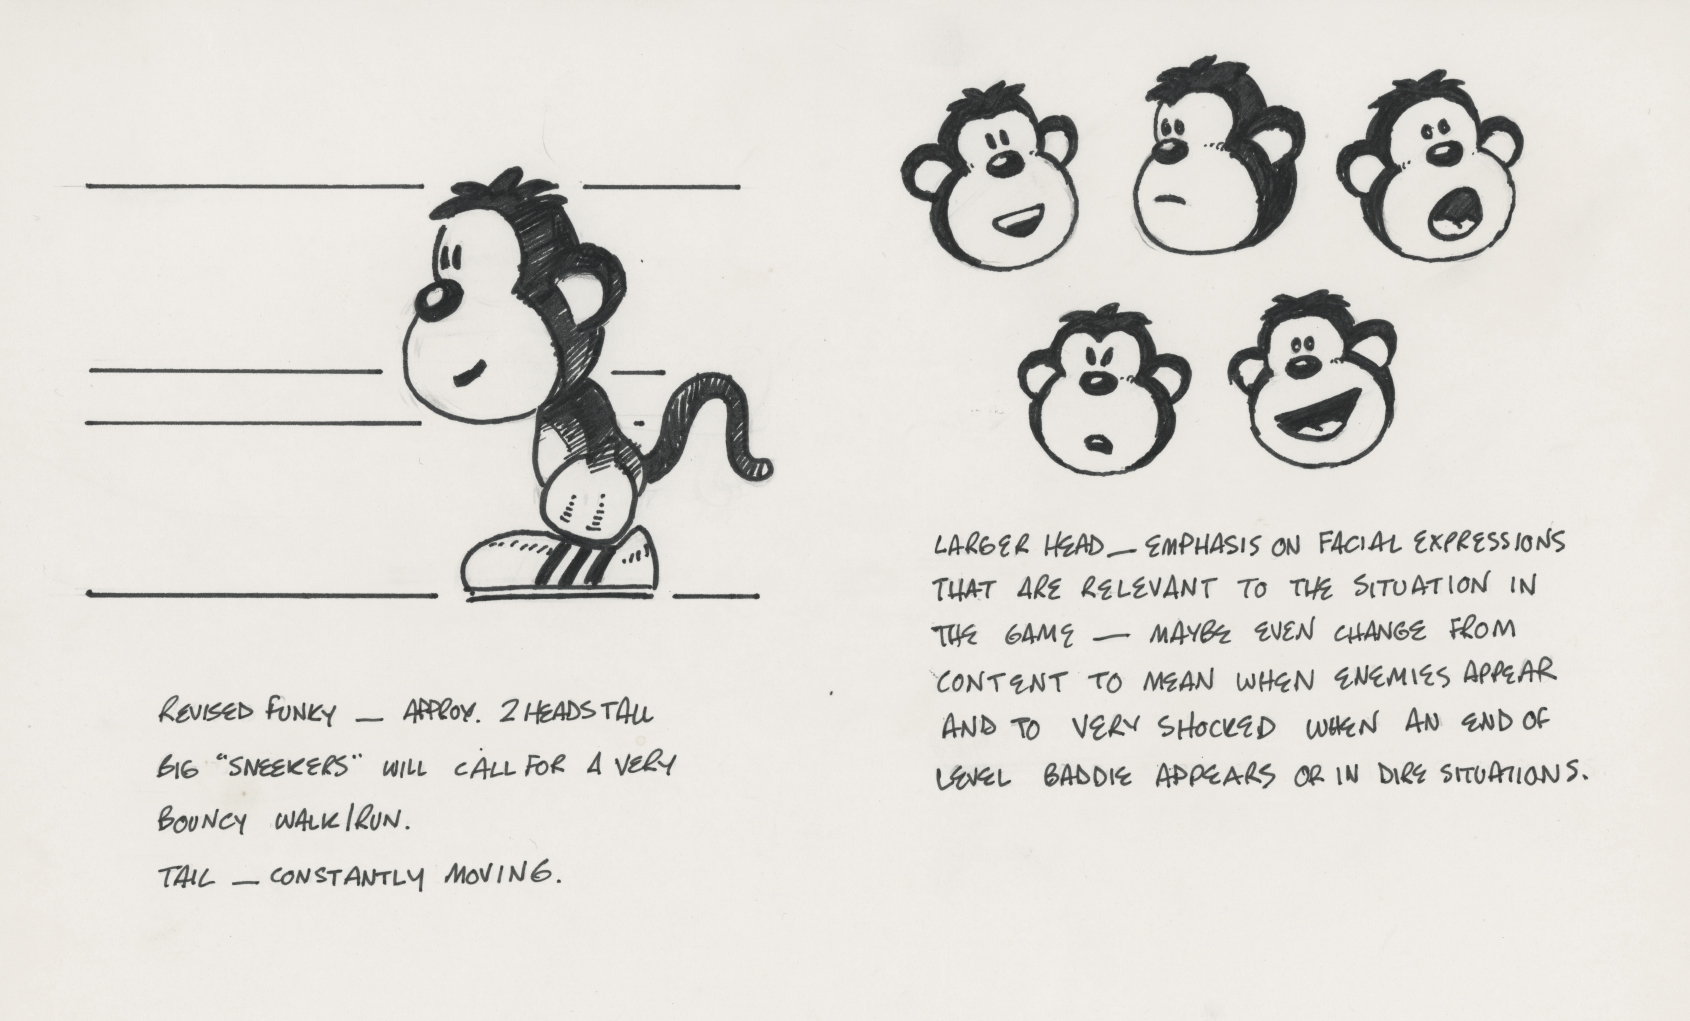 REVISED FUNKY — APPROX. 2 HEADS TALL
BIG "SNEEKERS" WILL CALL FOR A VERY
BOUNCY WALK/RUN.
TAIL — CONSTANTLY MOVING.
LARGER HEAD — EMPHASIS ON FACIAL EXPRESSIONS
THAT ARE RELEVANT TO THE SITUATION IN
THE GAME — MAYBE EVEN CHANGE FROM
CONTENT TO MEAN WHEN ENEMIES APPEAR
AND TO VERY SHOCKED WHEN AN END OF
LEVEL BADDIE APPEARS OR IN DIRE SITUATIONS.